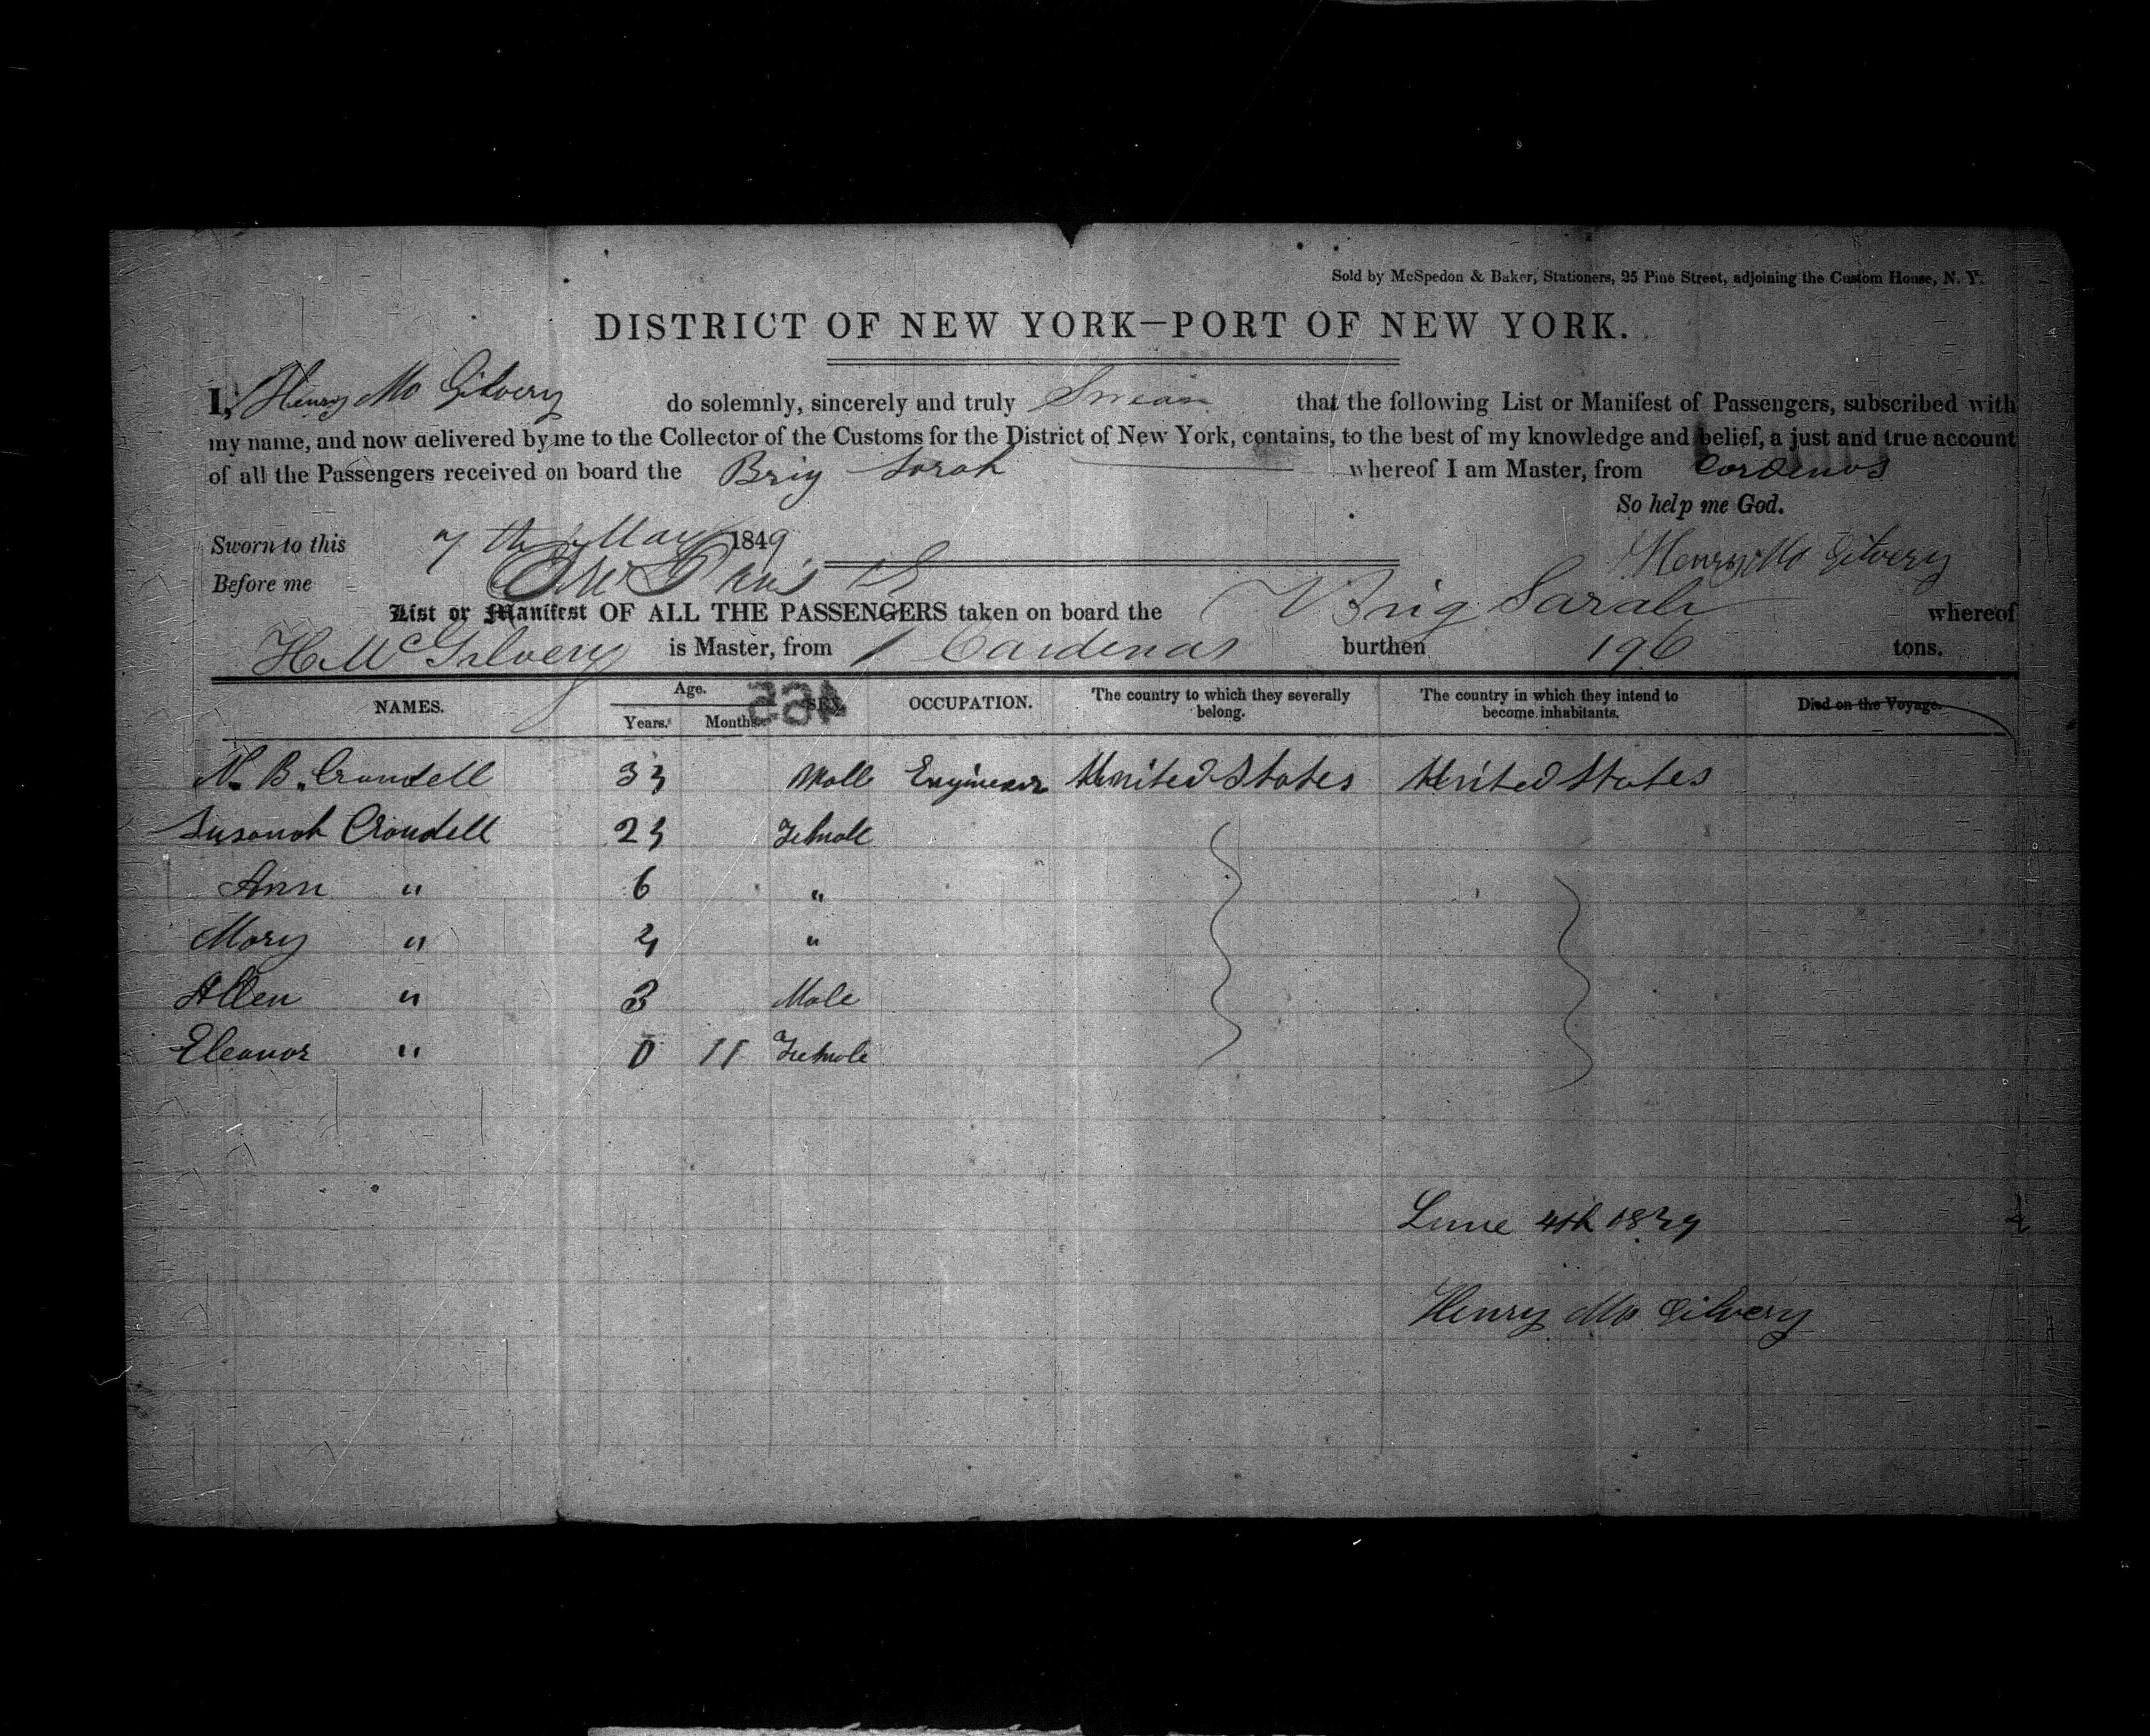 Sold by McSpedon & Baker, Stationers, 25 Pine Street, adjoining the Custom House, N. Y.
DISTRICT OF NEW YORK—PORT OF NEW YORK.
I, Henry Mc Gilvery do solemnly, sincerely and truly Swear that the following List or Manifest of Passengers, subscribed with
my name, and now delivered by me to the Collector of the Customs for the District of New York, contains, to the best of my knowledge and belief, a just and true account
of all the Passengers received on board the Brig Sarah whereof I am Master, from Cardenas
So help me God.
Sworn to this 7 th May 1849 Henry Mc Gilvery
Before me
List or Manifest OF ALL THE PASSENGERS taken on board the Brig Sarah whereof
H. McGilvery is Master, from Cardenas burthen 196 tons.
NAMES. Age. Years. Months. SEX. OCCUPATION. The country to which they severally belong. The country in which they intend to become inhabitants. Died on the Voyage.
465
N. B. Crandell 33 Malle Engineear United States United States
Susanah Crandell 23 Femall
Ann " 6 "
Mary " 4 "
Allen " 3 Male
Eleanor " 0 11 Female
June 4th 1849
Henry Mc Gilvery